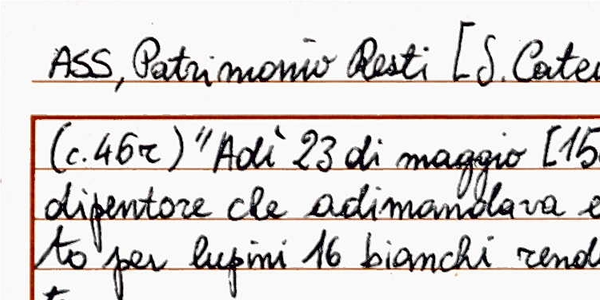 ASS, Patrimonio Resti [S. Cate
(c. 46r) "Adì 23 di maggio [15
dipentore che adimandava e
to per lupini 16 bianchi rend